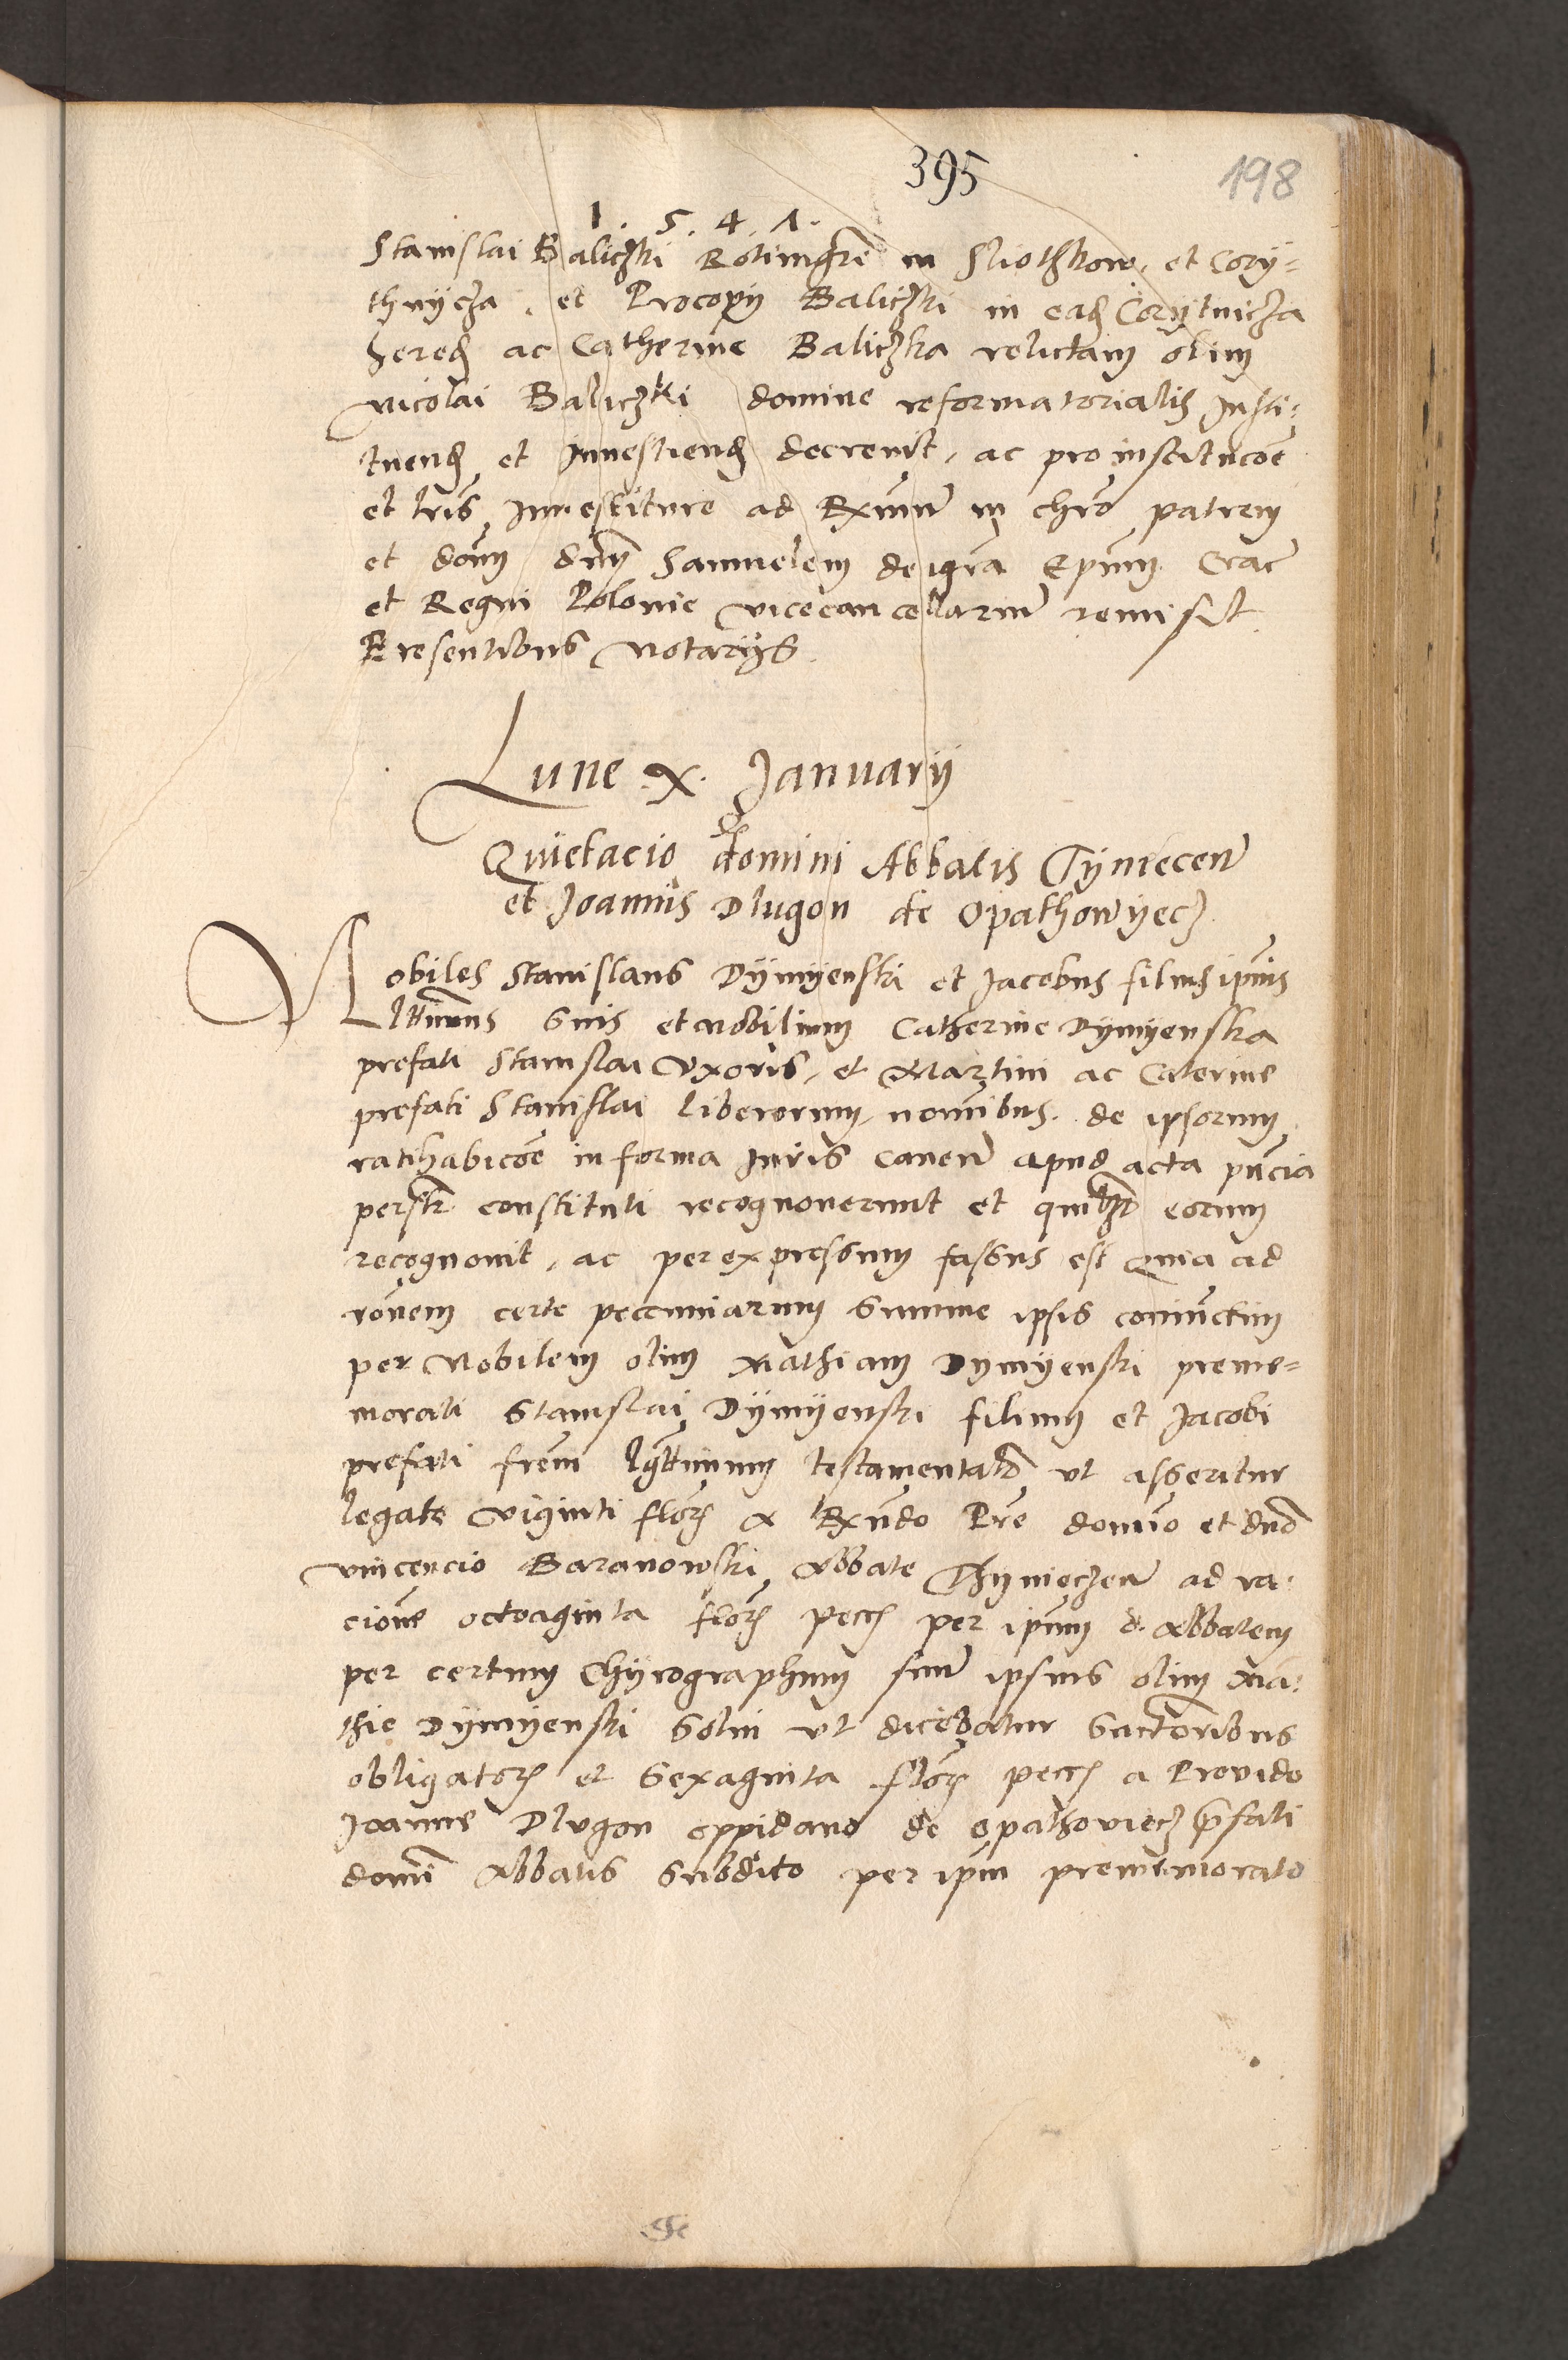 395
198
1. 5. 4. 1.
Stanislai Baliczki Rotimgrẽ in Sliothkow, et Cory=
thnycza, et Procopy Baliczki in ead Corytnicza
hered ac Catherine Baliczka relictam olim
Nicolai Baliczki domine reformatorialis Insti=
tuend et Inuestiend decreuit, ac pro institucõe
et lris Inuestiture ad Rxmum in chro patrem
et dom dnm Samuelem dei gra Epum Crac
et Regni Polonie vicecancellarium remisit
Presentibus Notarys.
Lune .x. January
Quietacio domini Abbatis Tyniecen
et Joannis Dlugon de Opathowyecz
Nobiles Stanislaus Dymyenski et Jacobus filius ipius
lttimus suis et nobilium Catherine Dymyenska
prefati Stanislai Vxoris, et Martini ac Caterine
prefati Stanislai liberorum, nominibus. de ipsorum
ratihabicõe in forma Juris canen apud acta pncia
personalr constituti recognouerunt et quilibet eorum
recognouit, ac per expressum fassus est Quia ad
ronem certe pecuniarum summe ipsis coniunctim
per Nobilem olim Mathiam Dymyenski preme=
morati Stanislai Dymyenski filium et Jacobi
prefati frem lgttimum testamentalr vt asseritur
legate viginti flor a Rxndo Pre domino et dno
Vincencio Baranowski Abbate Thynieczen ad ra=
cione octoaginta flor pecc per ipum d. Abbatem
per certum Chyrographum suum ipsius olim Ma=
thie Dymyenski solui vt dicebatur Successoribus
obligator et sexaginta flor pecc a Prouido
Joanne Dlugon oppidano de Opathouiecz prefati
domi Abbatis Subdito per ipm prememorato